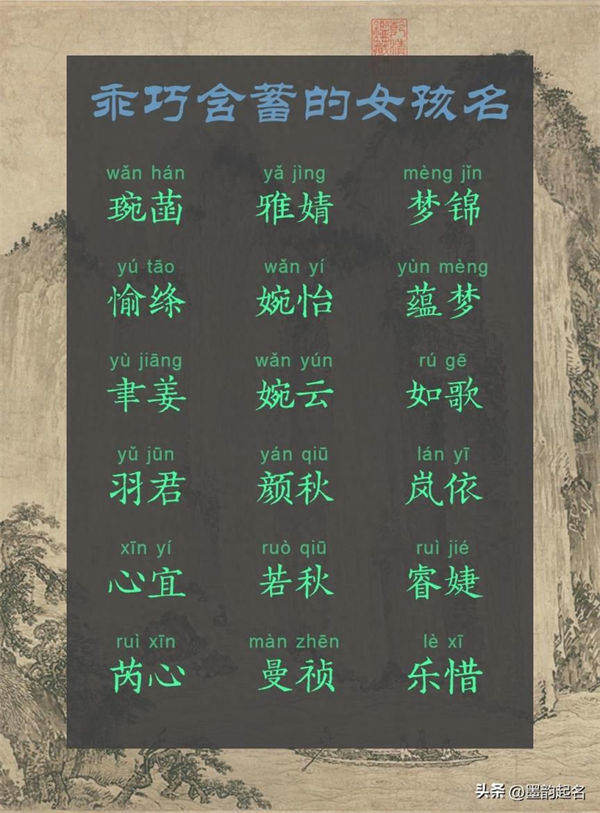 乖巧含蓄的女孩名
wǎn hán yǎ jìng mèng jǐn
琬菡 雅婧 梦锦
yú tāo wǎn yí yùn mèng
愉绦 婉怡 蕴梦
yù jiāng wǎn yún rú gē
聿姜 婉云 如歌
yǔ jūn yán qiū lán yī
羽君 颜秋 岚依
xīn yí ruò qiū ruì jié
心宜 若秋 睿婕
ruì xīn màn zhēn lè xī
芮心 曼祯 乐惜
头条 @墨韵起名